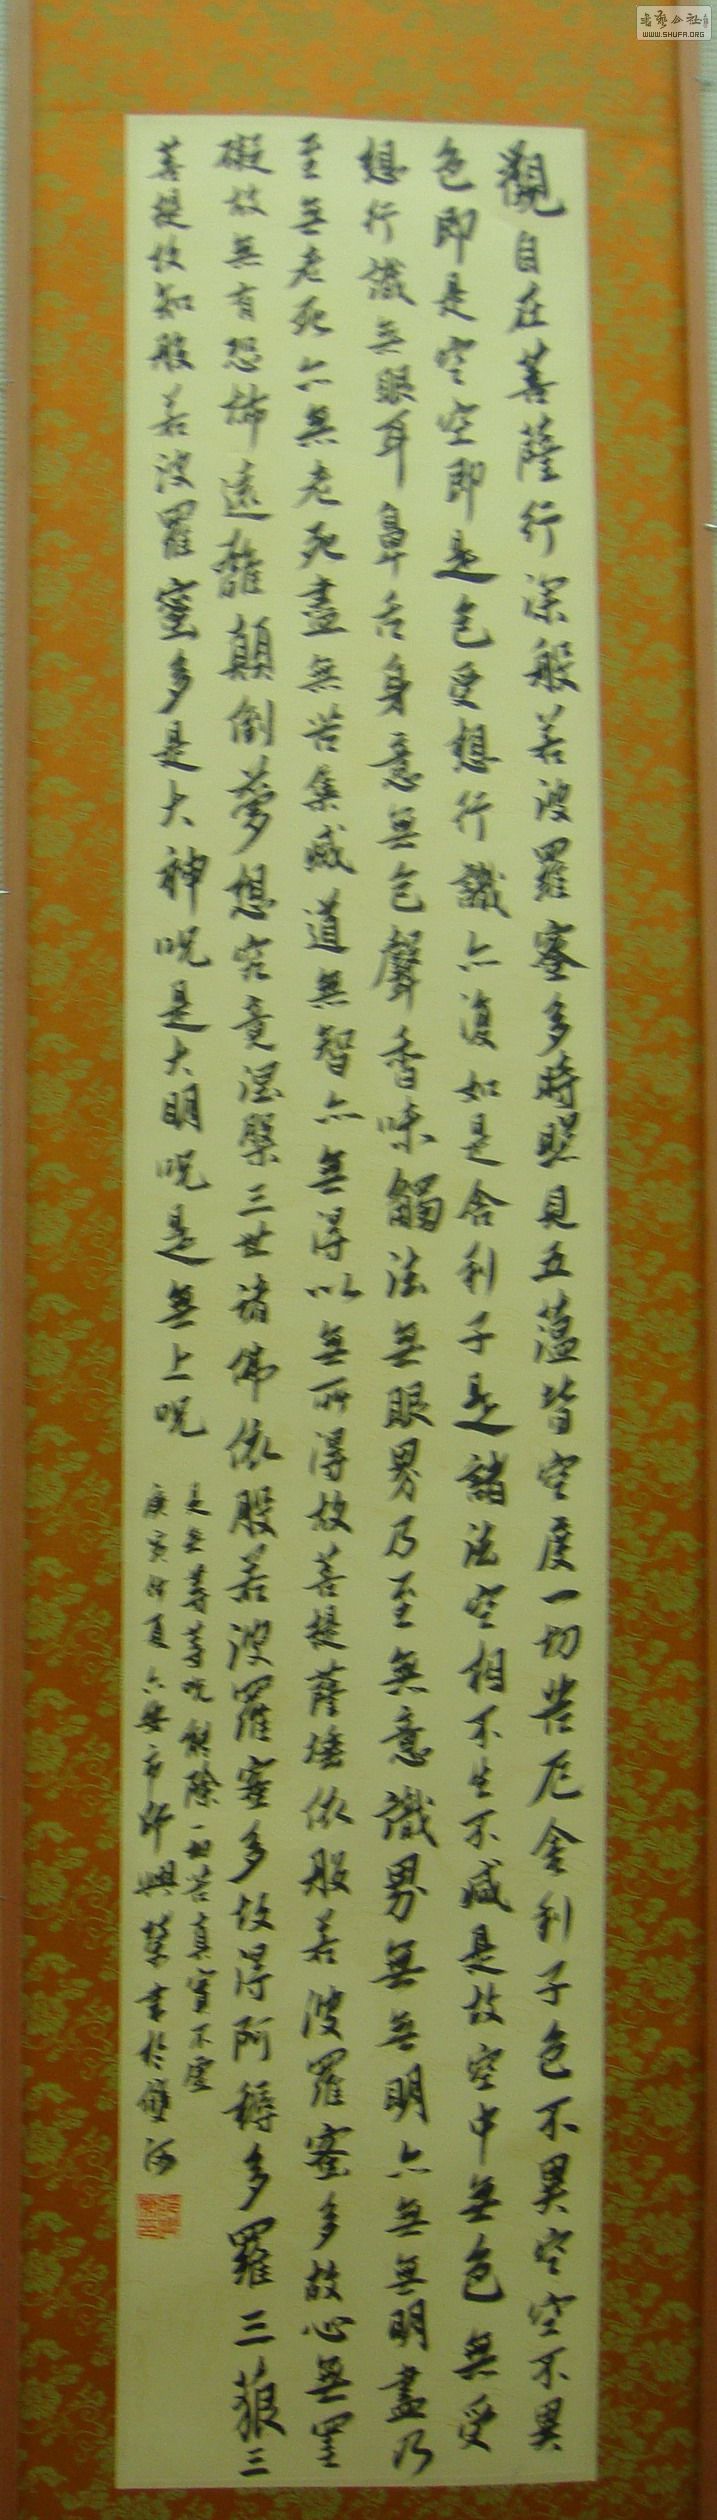 觀自在菩薩行深般若波羅蜜多時照見五蘊皆空度一切苦厄舍利子色不異空空不異
色即是空空即是色受想行識亦復如是舍利子是諸法空相不生不滅是故空中無色無受
想行識無眼耳鼻舌身意無色聲香味觸法無眼界乃至無意識界無無明亦無無明盡乃
至無老死亦無老死盡無苦集滅道無智亦無得以無所得故菩提薩埵依般若波羅蜜多故心無罣
礙故無有恐怖遠離顛倒夢想究竟涅槃三世諸佛依般若波羅蜜多故得阿耨多羅三藐三
菩提故知般若波羅蜜多是大神呪是大明呪是無上呪
是無等等呪能除一切苦真實不虛
庚寅仲夏六安市許興榮書於雙河
書藝公社
WWW.SHUFA.ORG